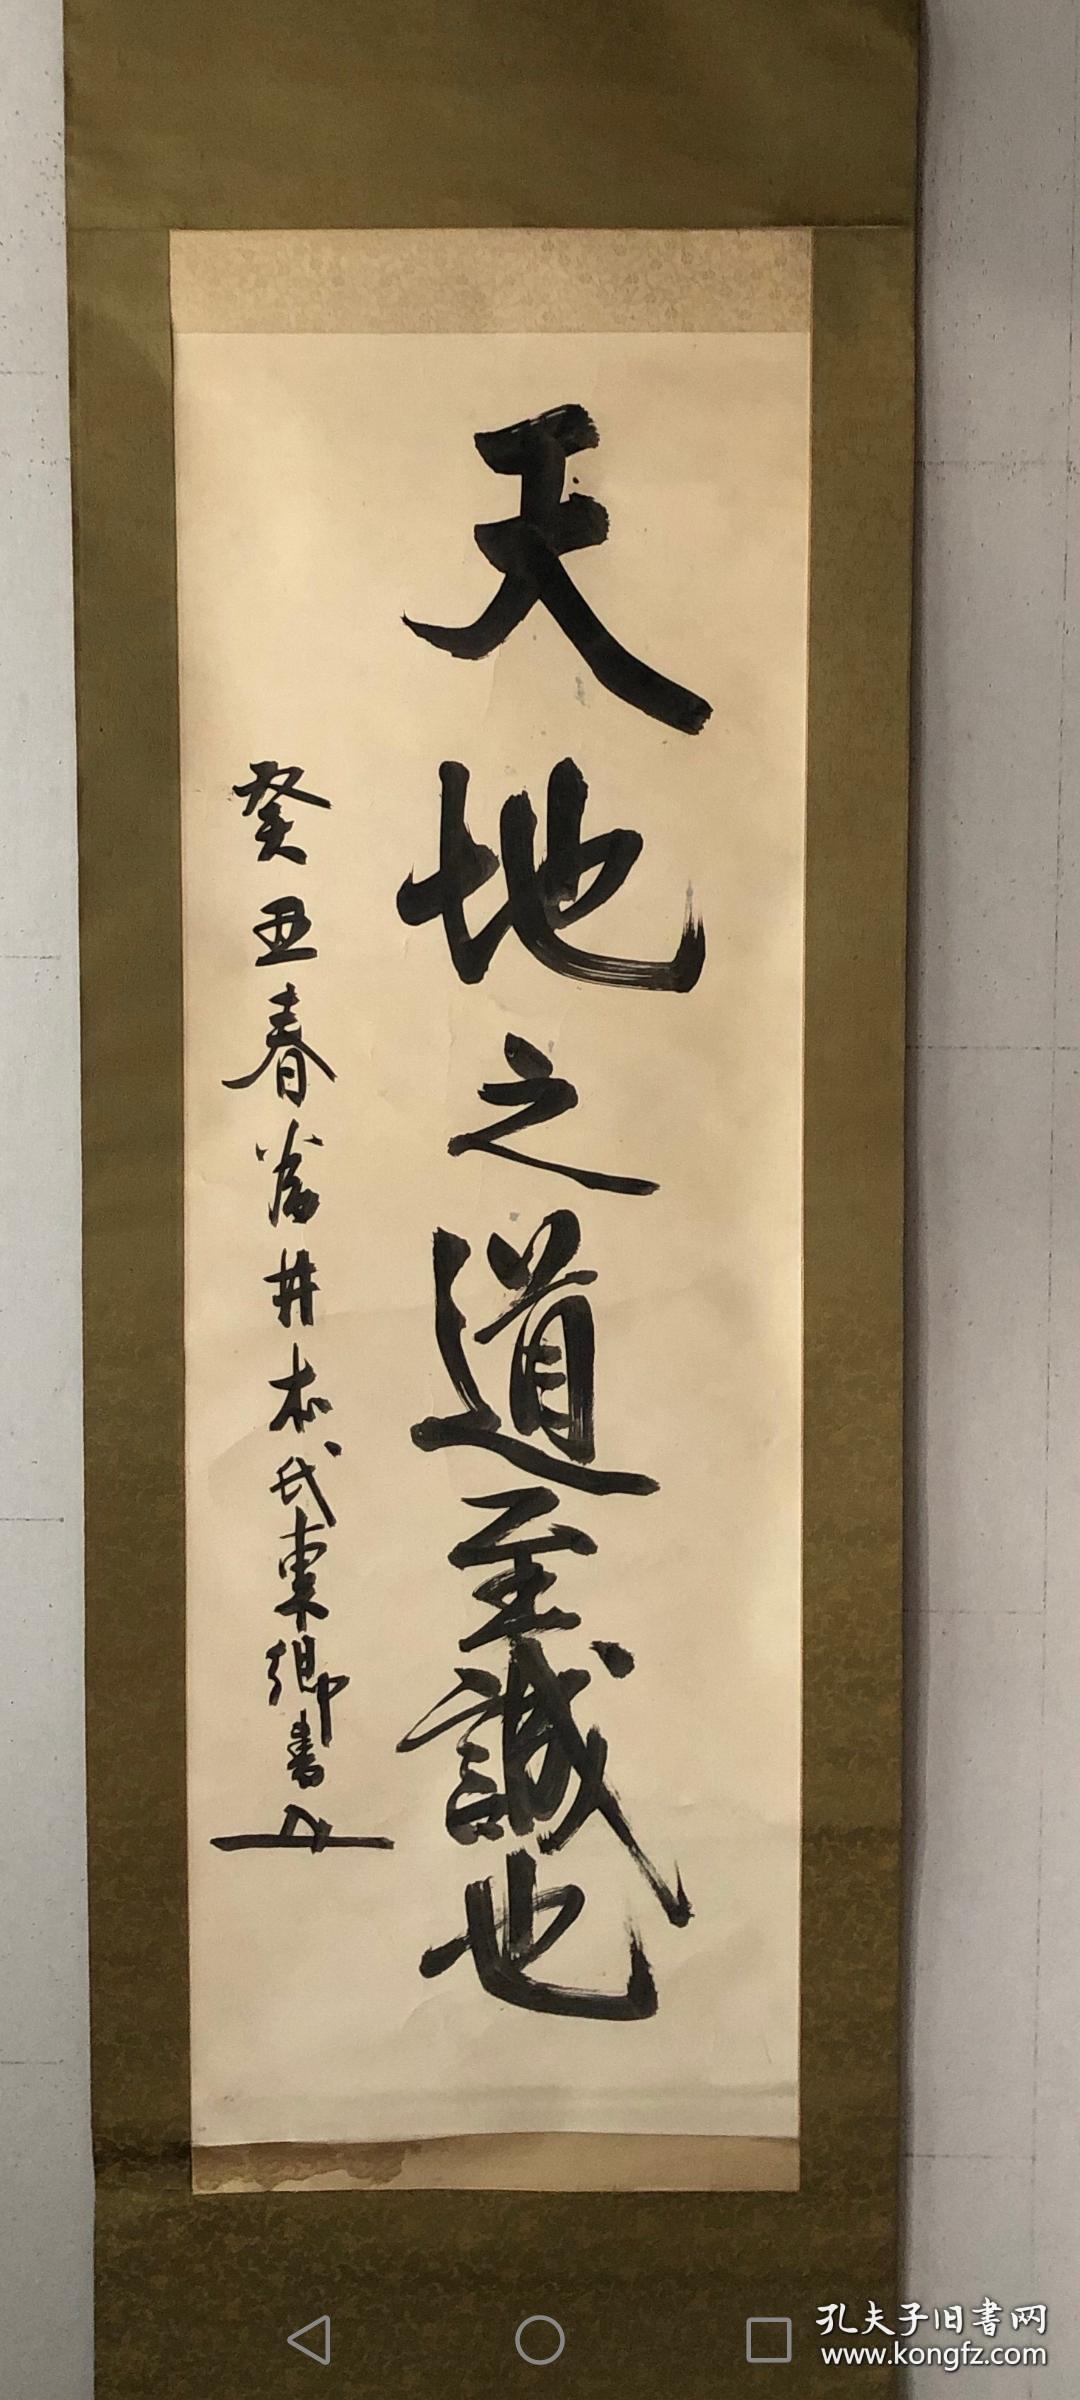 天地之道至誠也
癸丑春為井林氏東鄉書
孔夫子旧書网
www.kongfz.com